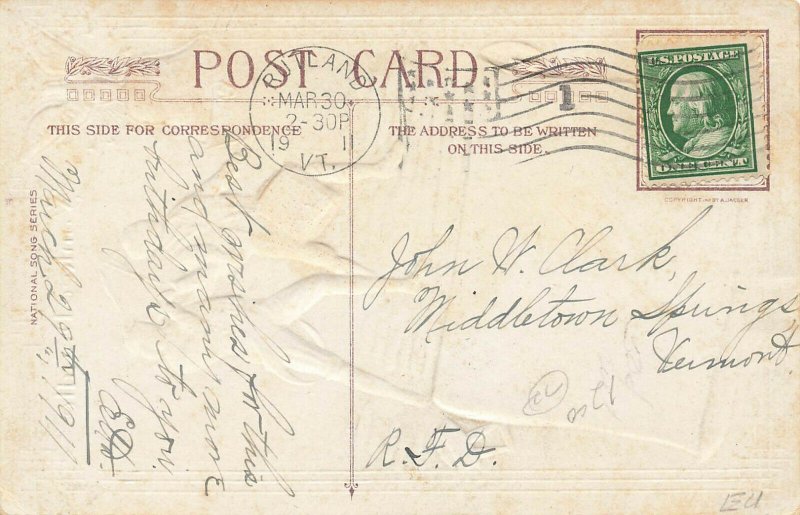 POST CARD
RUTLAND
MAR 30
2-30P
19 1
VT.
1
U.S. POSTAGE
ONE CENT
THIS SIDE FOR CORRESPONDENCE
THE ADDRESS TO BE WRITTEN
ON THIS SIDE.
NATIONAL SONG SERIES
March 29th, 1911
Best wishes for this
and many more
birthdays to you
John W. Clark,
Middletown Springs
Vermont.
R.F.D.
EU